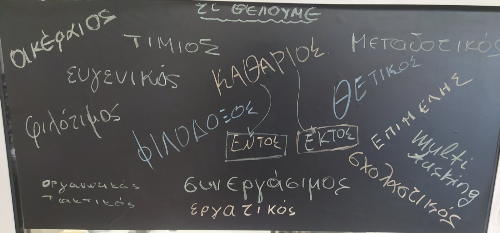 τι ΘΕΛΟΥΜΕ
ακέραιος
ΤΙΜΙΟΣ
ΜεΤαδοΤικός
ευγενικός
ΚΑΘΑΡΙΟΣ
ΘΕΤΙΚΟΣ
φιλότιμος
ΦΙΛΟΔΟΞΟΣ
ΕΠΙΜΕΛΗΣ
Multi
tasking
ΕΝΤΟΣ
ΕΚΤΟΣ
σχολαστικός
οργανωτικός
Τακτικός
συνεργάσιμος
εργατικός